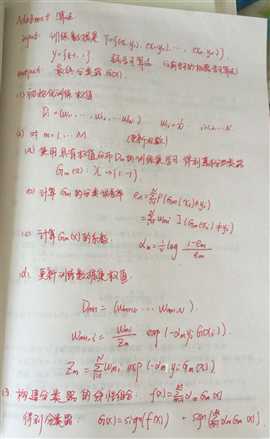 Adaboost 算法
input: 训练数据集 T={(x₁,y₁), (x₂,y₂), ..., (xₙ,yₙ)},
y={+1,-1} 弱学习算法
output: 最终分类器 G(x).
(1) 初始化训练权值
D₁=(w₁₁, ..., w₁ᵢ, ..., w₁N) w₁ᵢ=1/N i=1,2...N
(2) 对 m=1...M
(a) 使用具有权值分布Dm的训练数据学习 得到基本分类器
Gm(x): X→{1,-1}
(b) 计算 Gm 的分类误差率 em=ΣP(Gm(xi)≠yi)
=Σwmi I(Gm(xi)≠yi)
(c) 计算Gm(x)的系数 αm=½log (1-em)/em
(d) 更新训练数据集权值.
Dm+1=(wm+1,1, ... wm+1,N).
wm+1,i = wmi/Zm exp(-αm yi G(xi)).
Zm=Σwmi exp(-αm yi Gm(xi))
(3) 构建分类器的线性组合: f(x)=Σαm Gm(x)
得到分类器: G(x)=sign(f(x)) = sign(Σαm Gm(x))